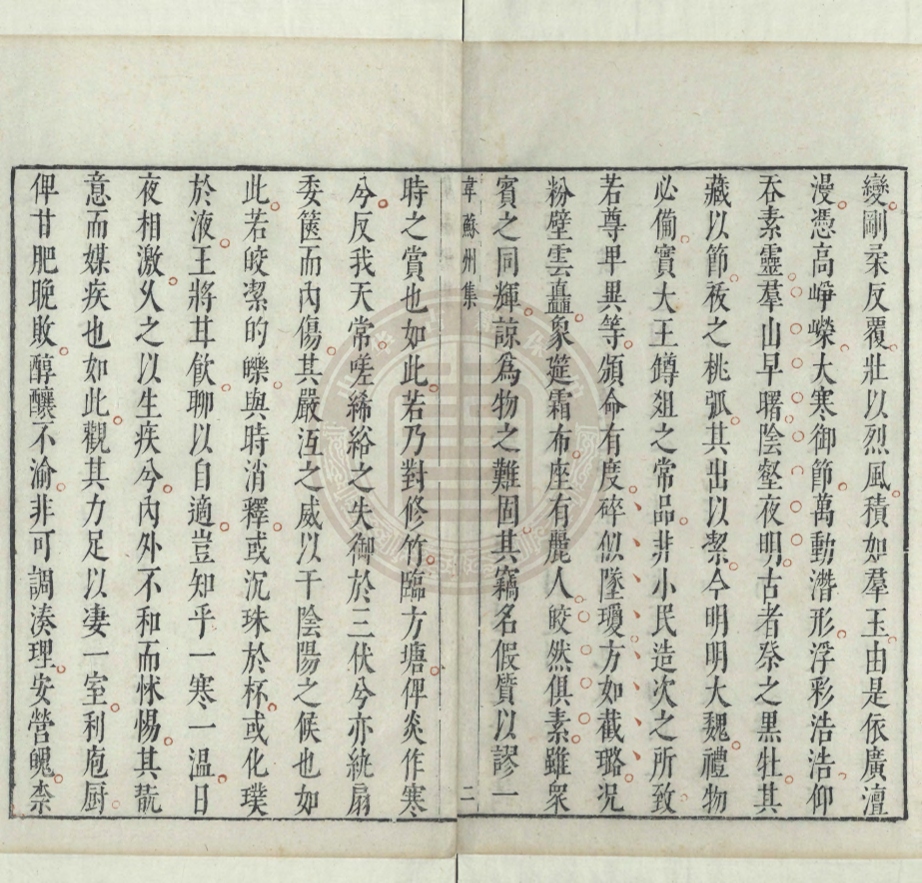 變剛柔反覆壯以烈風積如羣玉由是依廣澶
漫憑高崢嶸大寒御節萬動潛形浮彩浩浩仰
吞素靈羣山早曙陰壑夜明古者祭之黑牡其
藏以節祓之桃弧其出以潔今明明大魏禮物
必備實大王鐏俎之常品非小民造次之所致
若尊卑異等頒命有度碎似墜瓊方如截璐况
粉壁雲矗象筵霜布座有麗人皎然俱素雖衆
賓之同輝諒爲物之難固其竊名假質以謬一
韋蘇州集 二
時之賞也如此若乃對修竹臨方塘俾炎作寒
兮反我天常嗟絺綌之失御於三伏兮亦紈扇
委篋而內傷其嚴沍之威以干陰陽之候也如
此若皎潔的皪與時消釋或沉珠於杯或化璞
於液王將甘飲聊以自適豈知乎一寒一溫日
夜相激久之以生疾兮內外不和而怵惕其翫
意而媒疾也如此觀其力足以凄一室利庖厨
俾甘肥晚敗醇釀不渝非可調湊理安營魄柰